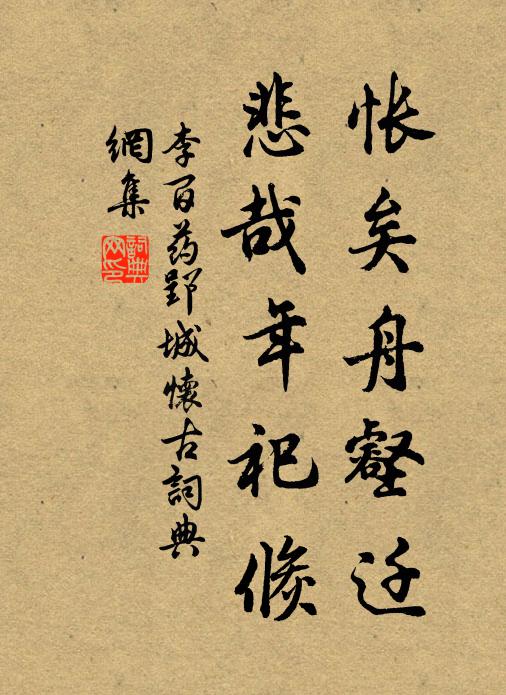 怅矣舟壑迁
悲哉年祀倏
李百药郢城懷古詞典
網集
詞典
网印